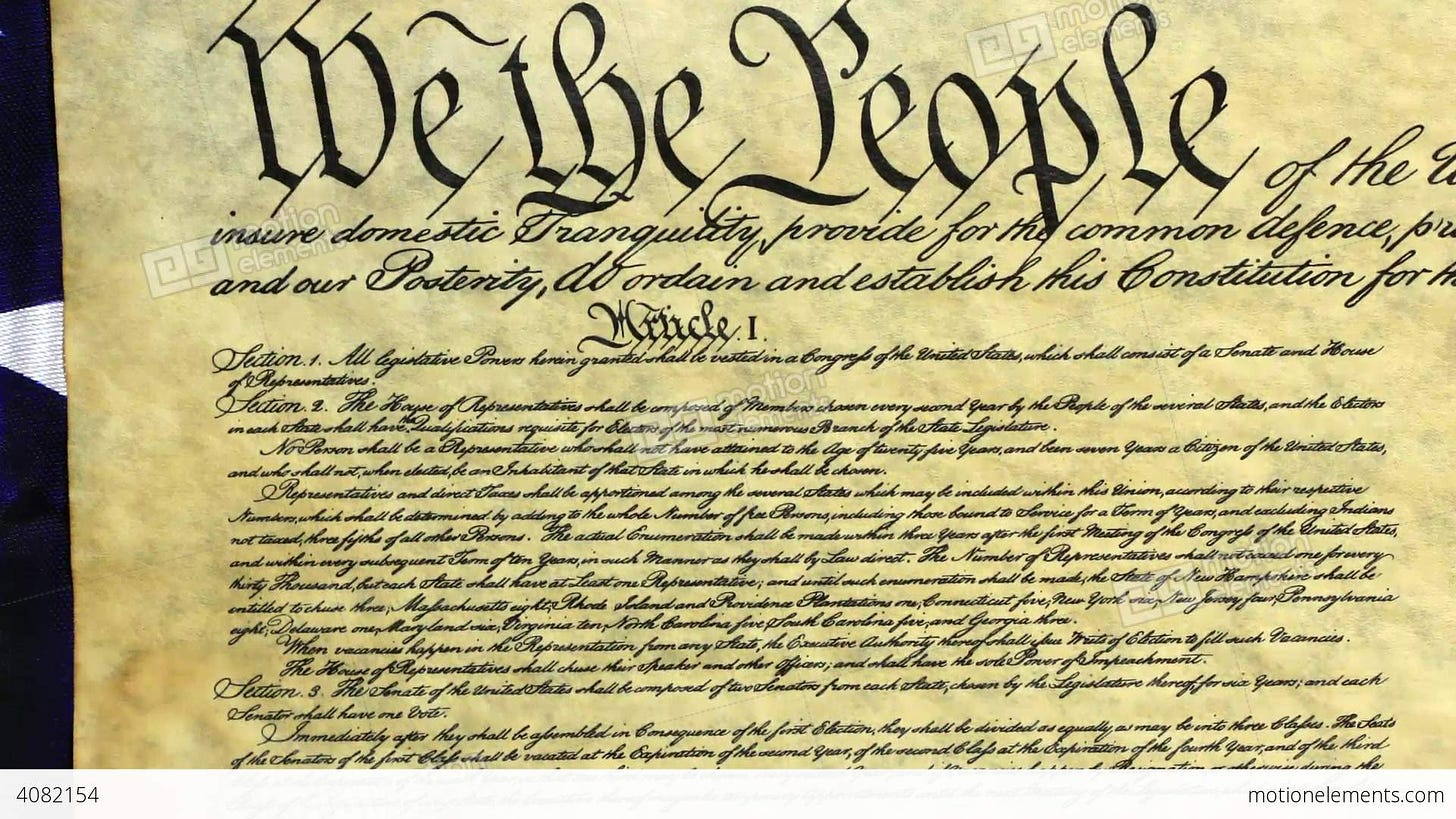 We the People of the U
insure domestic Tranquility, provide for the common defence, pr
and our Posterity, do ordain and establish this Constitution for th
Article. I.
Section. 1. All legislative Powers herein granted shall be vested in a Congress of the United States, which shall consist of a Senate and House
of Representatives.
Section. 2. The House of Representatives shall be composed of Members chosen every second Year by the People of the several States, and the Electors
in each State shall have the Qualifications requisite for Electors of the most numerous Branch of the State Legislature.
No Person shall be a Representative who shall not have attained to the Age of twenty five Years, and been seven Years a Citizen of the United States,
and who shall not, when elected, be an Inhabitant of that State in which he shall be chosen.
Representatives and direct Taxes shall be apportioned among the several States which may be included within this Union, according to their respective
Numbers, which shall be determined by adding to the whole Number of free Persons, including those bound to Service for a Term of Years, and excluding Indians
not taxed, three fifths of all other Persons. The actual Enumeration shall be made within three Years after the first Meeting of the Congress of the United States,
and within every subsequent Term of ten Years, in such Manner as they shall by Law direct. The Number of Representatives shall not exceed one for every
thirty Thousand, but each State shall have at Least one Representative; and until such enumeration shall be made, the State of New Hampshire shall be
entitled to chuse three, Massachusetts eight, Rhode Island and Providence Plantations one, Connecticut five, New York six, New Jersey four, Pennsylvania
eight, Delaware one, Maryland six, Virginia ten, North Carolina five, South Carolina five, and Georgia three.
When vacancies happen in the Representation from any State, the Executive Authority thereof shall issue Writs of Election to fill such Vacancies.
The House of Representatives shall chuse their Speaker and other Officers; and shall have the sole Power of Impeachment.
Section. 3. The Senate of the United States shall be composed of two Senators from each State, chosen by the Legislature thereof, for six Years; and each
Senator shall have one Vote.
Immediately after they shall be assembled in Consequence of the first Election, they shall be divided as equally as may be into three Classes. The Seats
of the Senators of the first Class shall be vacated at the Expiration of the second Year, of the second Class at the Expiration of the fourth Year, and of the third
motion elements
4082154
motionelements.com